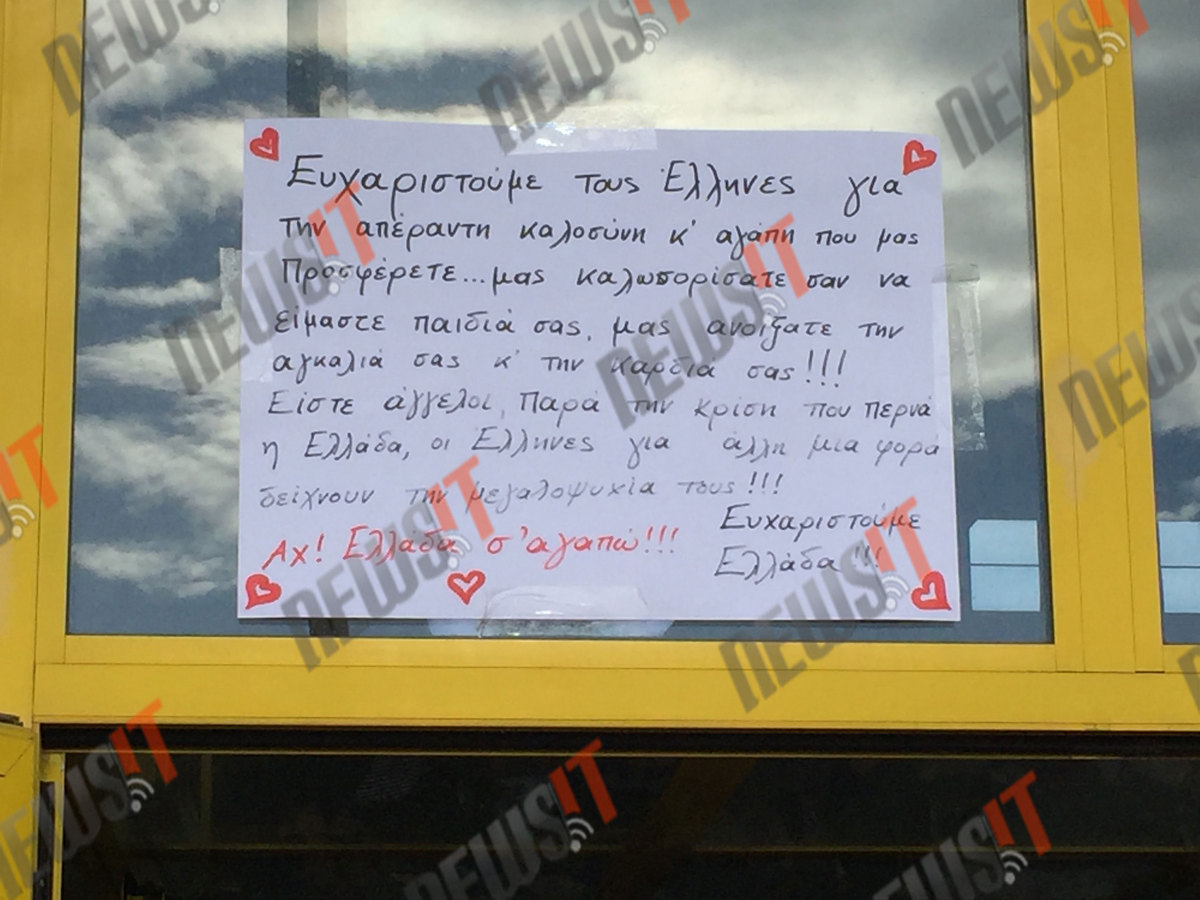 Ευχαριστούμε τους Έλληνες για
την απέραντη καλοσύνη κ' αγάπη που μας
Προσφέρετε... μας καλωσορίσατε σαν να
είμαστε παιδιά σας, μας ανοίξατε την
αγκαλιά σας κ' την καρδιά σας!!!
Είστε άγγελοι, Παρά την κρίση που περνά
η Ελλάδα, οι Έλληνες για άλλη μια φορά
δείχνουν την μεγαλοψυχία τους!!!
Αχ! Ελλάδα σ'αγαπώ!!!
Ευχαριστούμε
Ελλάδα!!!
NEWSIT
NEWSIT
NEWSIT
NEWSIT
NEWSIT
NEWSIT
NEWSIT
NEWSIT
NEWSIT
NEWSIT
NEWSIT